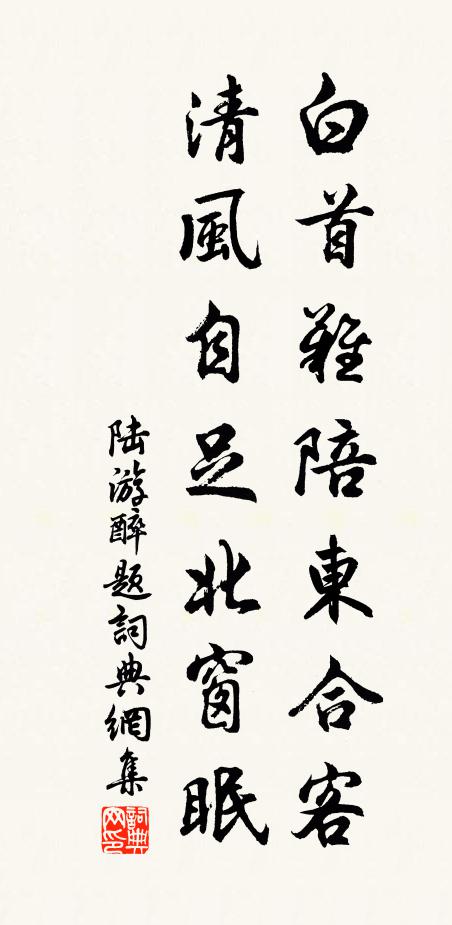 白首難陪東合客
清風自足北窗眠
陆游醉题詞典網集
詞典网印